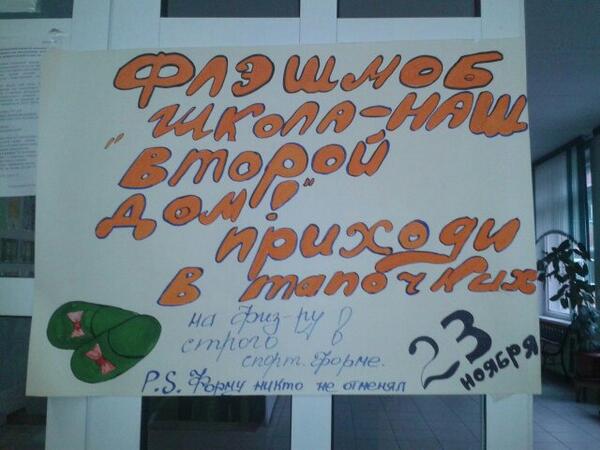 Флэшмоб
школа-наш
"второй
дом!"
приходи
в тапочках
на физ-ру
строго в
спорт. форме.
23
ноября
P.S. Форму никто не отменял